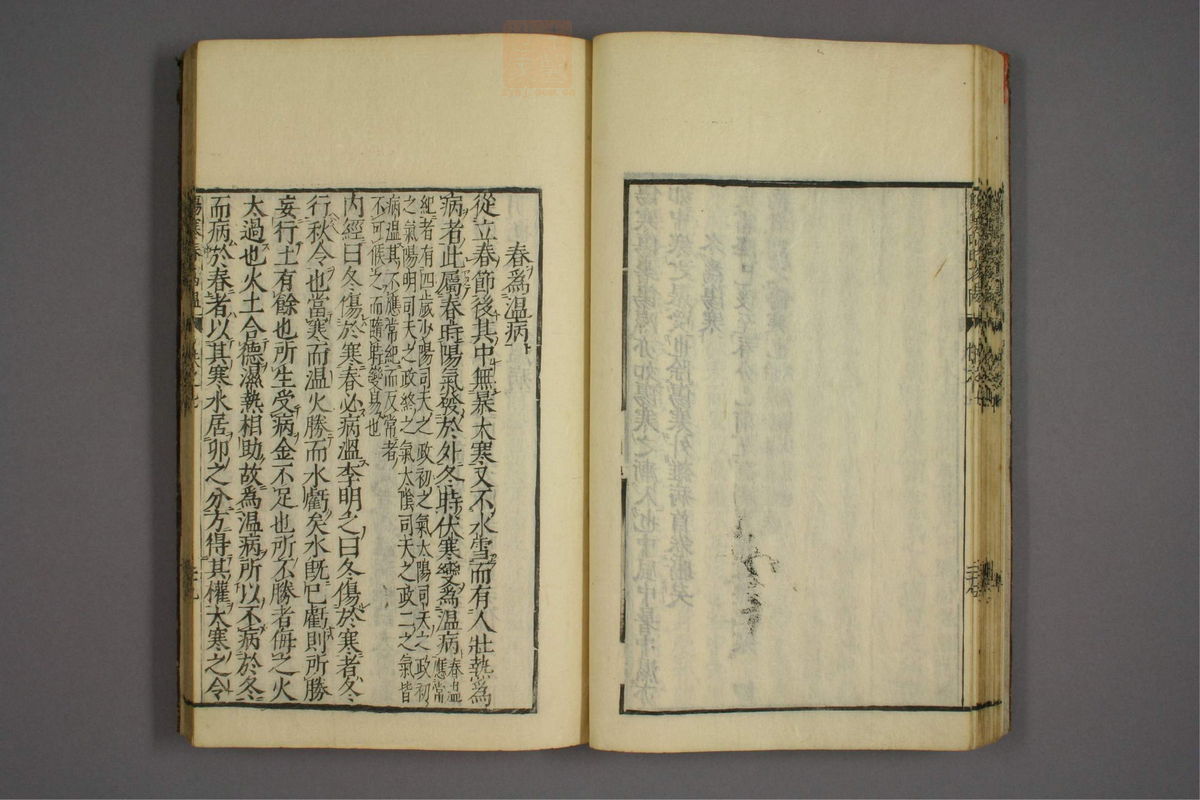 春爲溫病
從立春節後其中無暴大寒又不水雪而有人壯熱爲
病者此屬春時陽氣發於外冬時伏寒變爲溫病春溫應常
紀者有四歲少陽司天之政初之氣太陽司天之政初
之氣陽明司天之政終之氣太陰司天之政二之氣皆
病溫其不應常紀而反常者
不可候之而隨時變易也
内經曰冬傷於寒春必病溫李明之曰冬傷於寒者冬
行秋令也當寒而溫火勝而水虧矣水既已虧則所勝
妄行土有餘也所生受病金不足也所不勝者侮之火
太過也火土合德濕熱相助故爲溫病所以不病於冬
而病於春者以其寒水居卯之分方得其權大寒之令